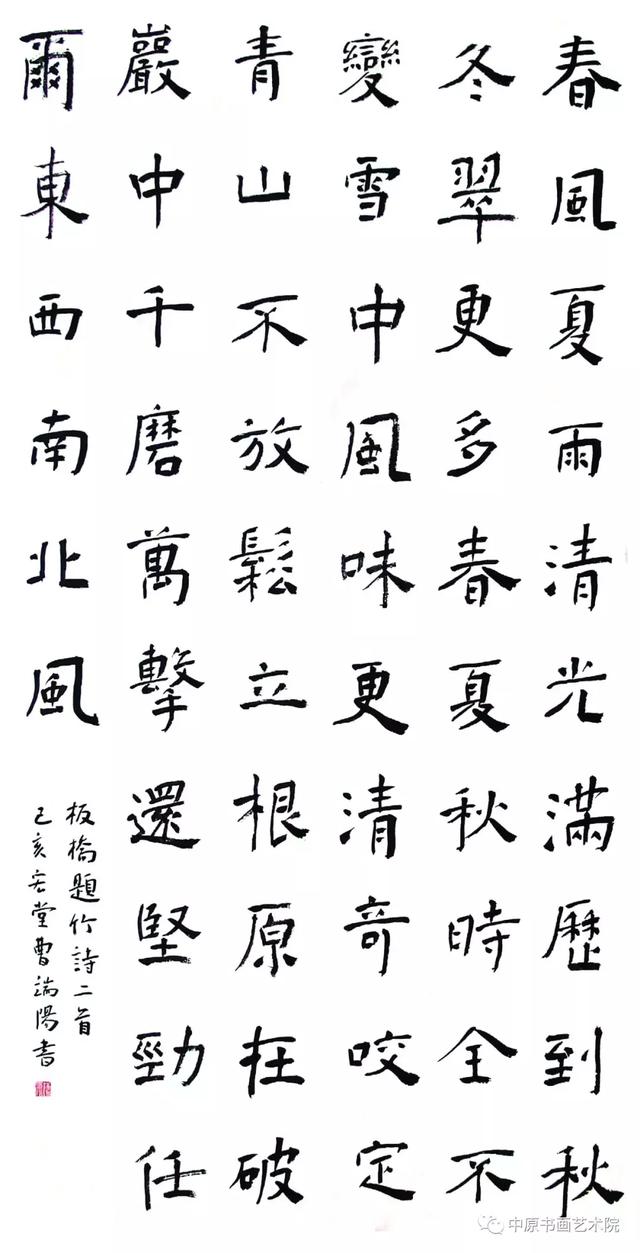 春風夏雨清光滿歷到秋
冬翠更多春夏秋時全不
變雪中風味更清奇咬定
青山不放鬆立根原在破
巖中千磨萬擊還堅勁任
爾東西南北風
板橋題竹詩二首
己亥宏堂曹端陽書
中原书画艺术院